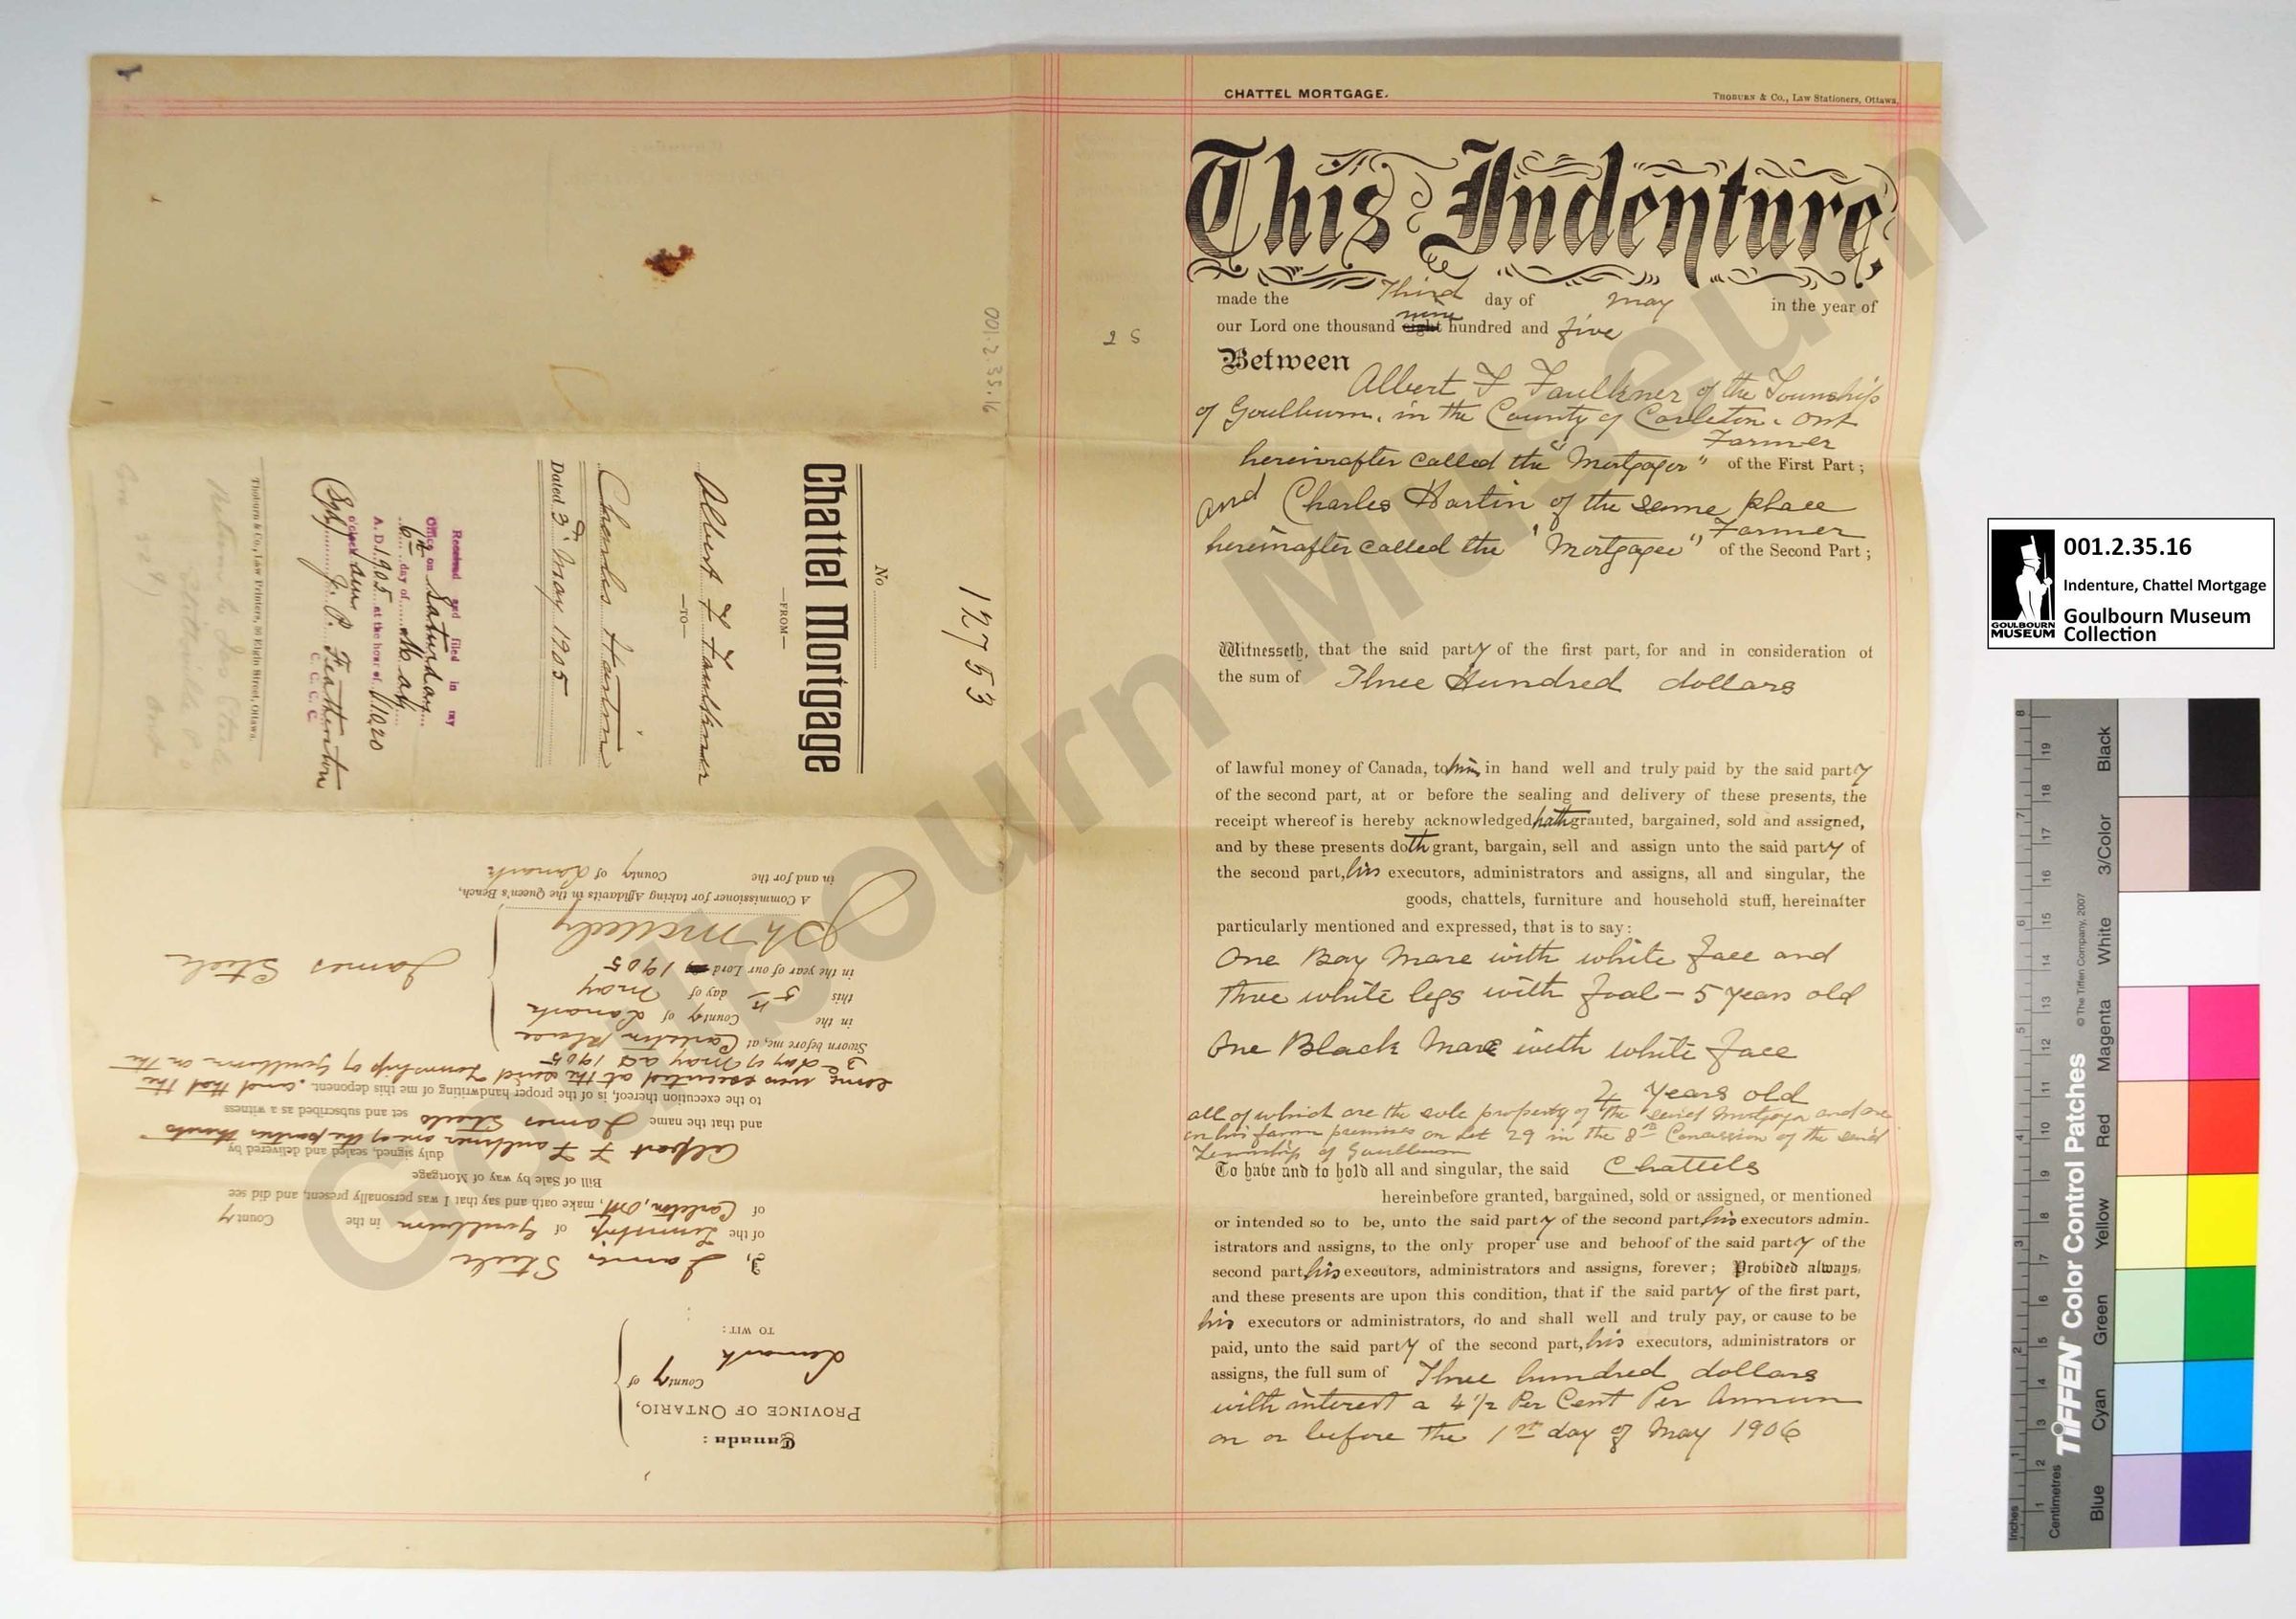 CHATTEL MORTGAGE.
THOBURN & Co., Law Stationers, Ottawa.
This Indenture,
made the Third day of May in the year of
nine
our Lord one thousand eight hundred and five
Between
Albert F Faulkner of the Township
of Goulburn, in the County of Carleton. Ont
Farmer
hereinafter called the "Mortgagor" of the First Part;
and Charles Hartin of the same place
Farmer
hereinafter called the "Mortgagee" of the Second Part;
Witnesseth, that the said party of the first part, for and in consideration of
the sum of Three Hundred dollars
of lawful money of Canada, to him in hand well and truly paid by the said party
of the second part, at or before the sealing and delivery of these presents, the
receipt whereof is hereby acknowledged hath granted, bargained, sold and assigned,
and by these presents doth grant, bargain, sell and assign unto the said party of
the second part, his executors, administrators and assigns, all and singular, the
goods, chattels, furniture and household stuff, hereinafter
particularly mentioned and expressed, that is to say:
One Bay Mare with white face and
three white legs with foal - 5 years old
One Black Mare with white face
4 years old
all of which are the sole property of the said Mortgagor and are
on his farm premises on Lot 29 in the 8th Concession of the said
Township of Goulburn
To have and to hold all and singular, the said Chattels
hereinbefore granted, bargained, sold or assigned, or mentioned
or intended so to be, unto the said party of the second part his executors admin-
istrators and assigns, to the only proper use and behoof of the said party of the
second part, his executors, administrators and assigns, forever; Provided always,
and these presents are upon this condition, that if the said party of the first part,
his executors or administrators, do and shall well and truly pay, or cause to be
paid, unto the said party of the second part, his executors, administrators or
assigns, the full sum of Three hundred dollars
with interest a 4½ Per Cent Per Annum
on or before the 1st day of May 1906
2 S
001.2.35.16
12753
No
Chattel Mortgage
—FROM—
Albert F Faulkner
—TO—
Charles Hartin
Dated 3d May 1905
Received and filed in my
Office on Saturday
6th day of May
A.D. 1905 at the hour of 11.20
o'clock am
(Sgd) J. P. Featherston
C. C. C. C.
Thoburn & Co., Law Printers, 36 Elgin Street, Ottawa.
Return to Jas Steele
Ont
Canada:
PROVINCE OF ONTARIO,
County of
Lanark
TO WIT:
I, James Steele
of the Township of Goulburn in the County
of Carleton, Ont, make oath and say that I was personally present, and did see
Bill of Sale by way of Mortgage
duly signed, sealed and delivered by
Albert F Faulkner one of the parties thereto
and that the name James Steele set and subscribed as a witness
to the execution thereof, is of the proper handwriting of me this deponent, and that the
same was executed at the said Township of Goulburn on the
3d day of May AD 1905
Sworn before me, at Carleton Place
in the County of Lanark
this 5th day of May
in the year of our Lord 1905
James Steele
A Commissioner for taking Affidavits in the Queen's Bench,
in and for the County of Lanark
Goulbourn Museum
001.2.35.16
Indenture, Chattel Mortgage
Goulbourn Museum
Collection
GOULBOURN
MUSEUM
TIFFEN Color Control Patches
© The Tiffen Company, 2007
Inches
Centimetres
Blue
Cyan
Green
Yellow
Red
Magenta
White
3/Color
Black